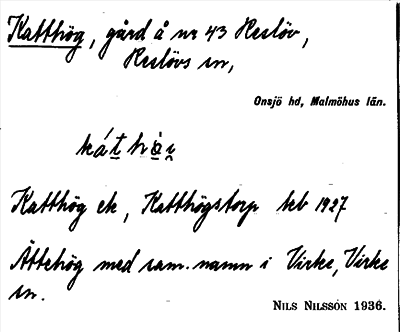 Katthög, gård å nr 43 Reslöv,
Reslövs sn,
Onsjö hd, Malmöhus län.
Katthög ek, Katthögstorp kb 1927
Ättehög med sam. namn i Virke, Virke
sn.
NILS NILSSON 1936.